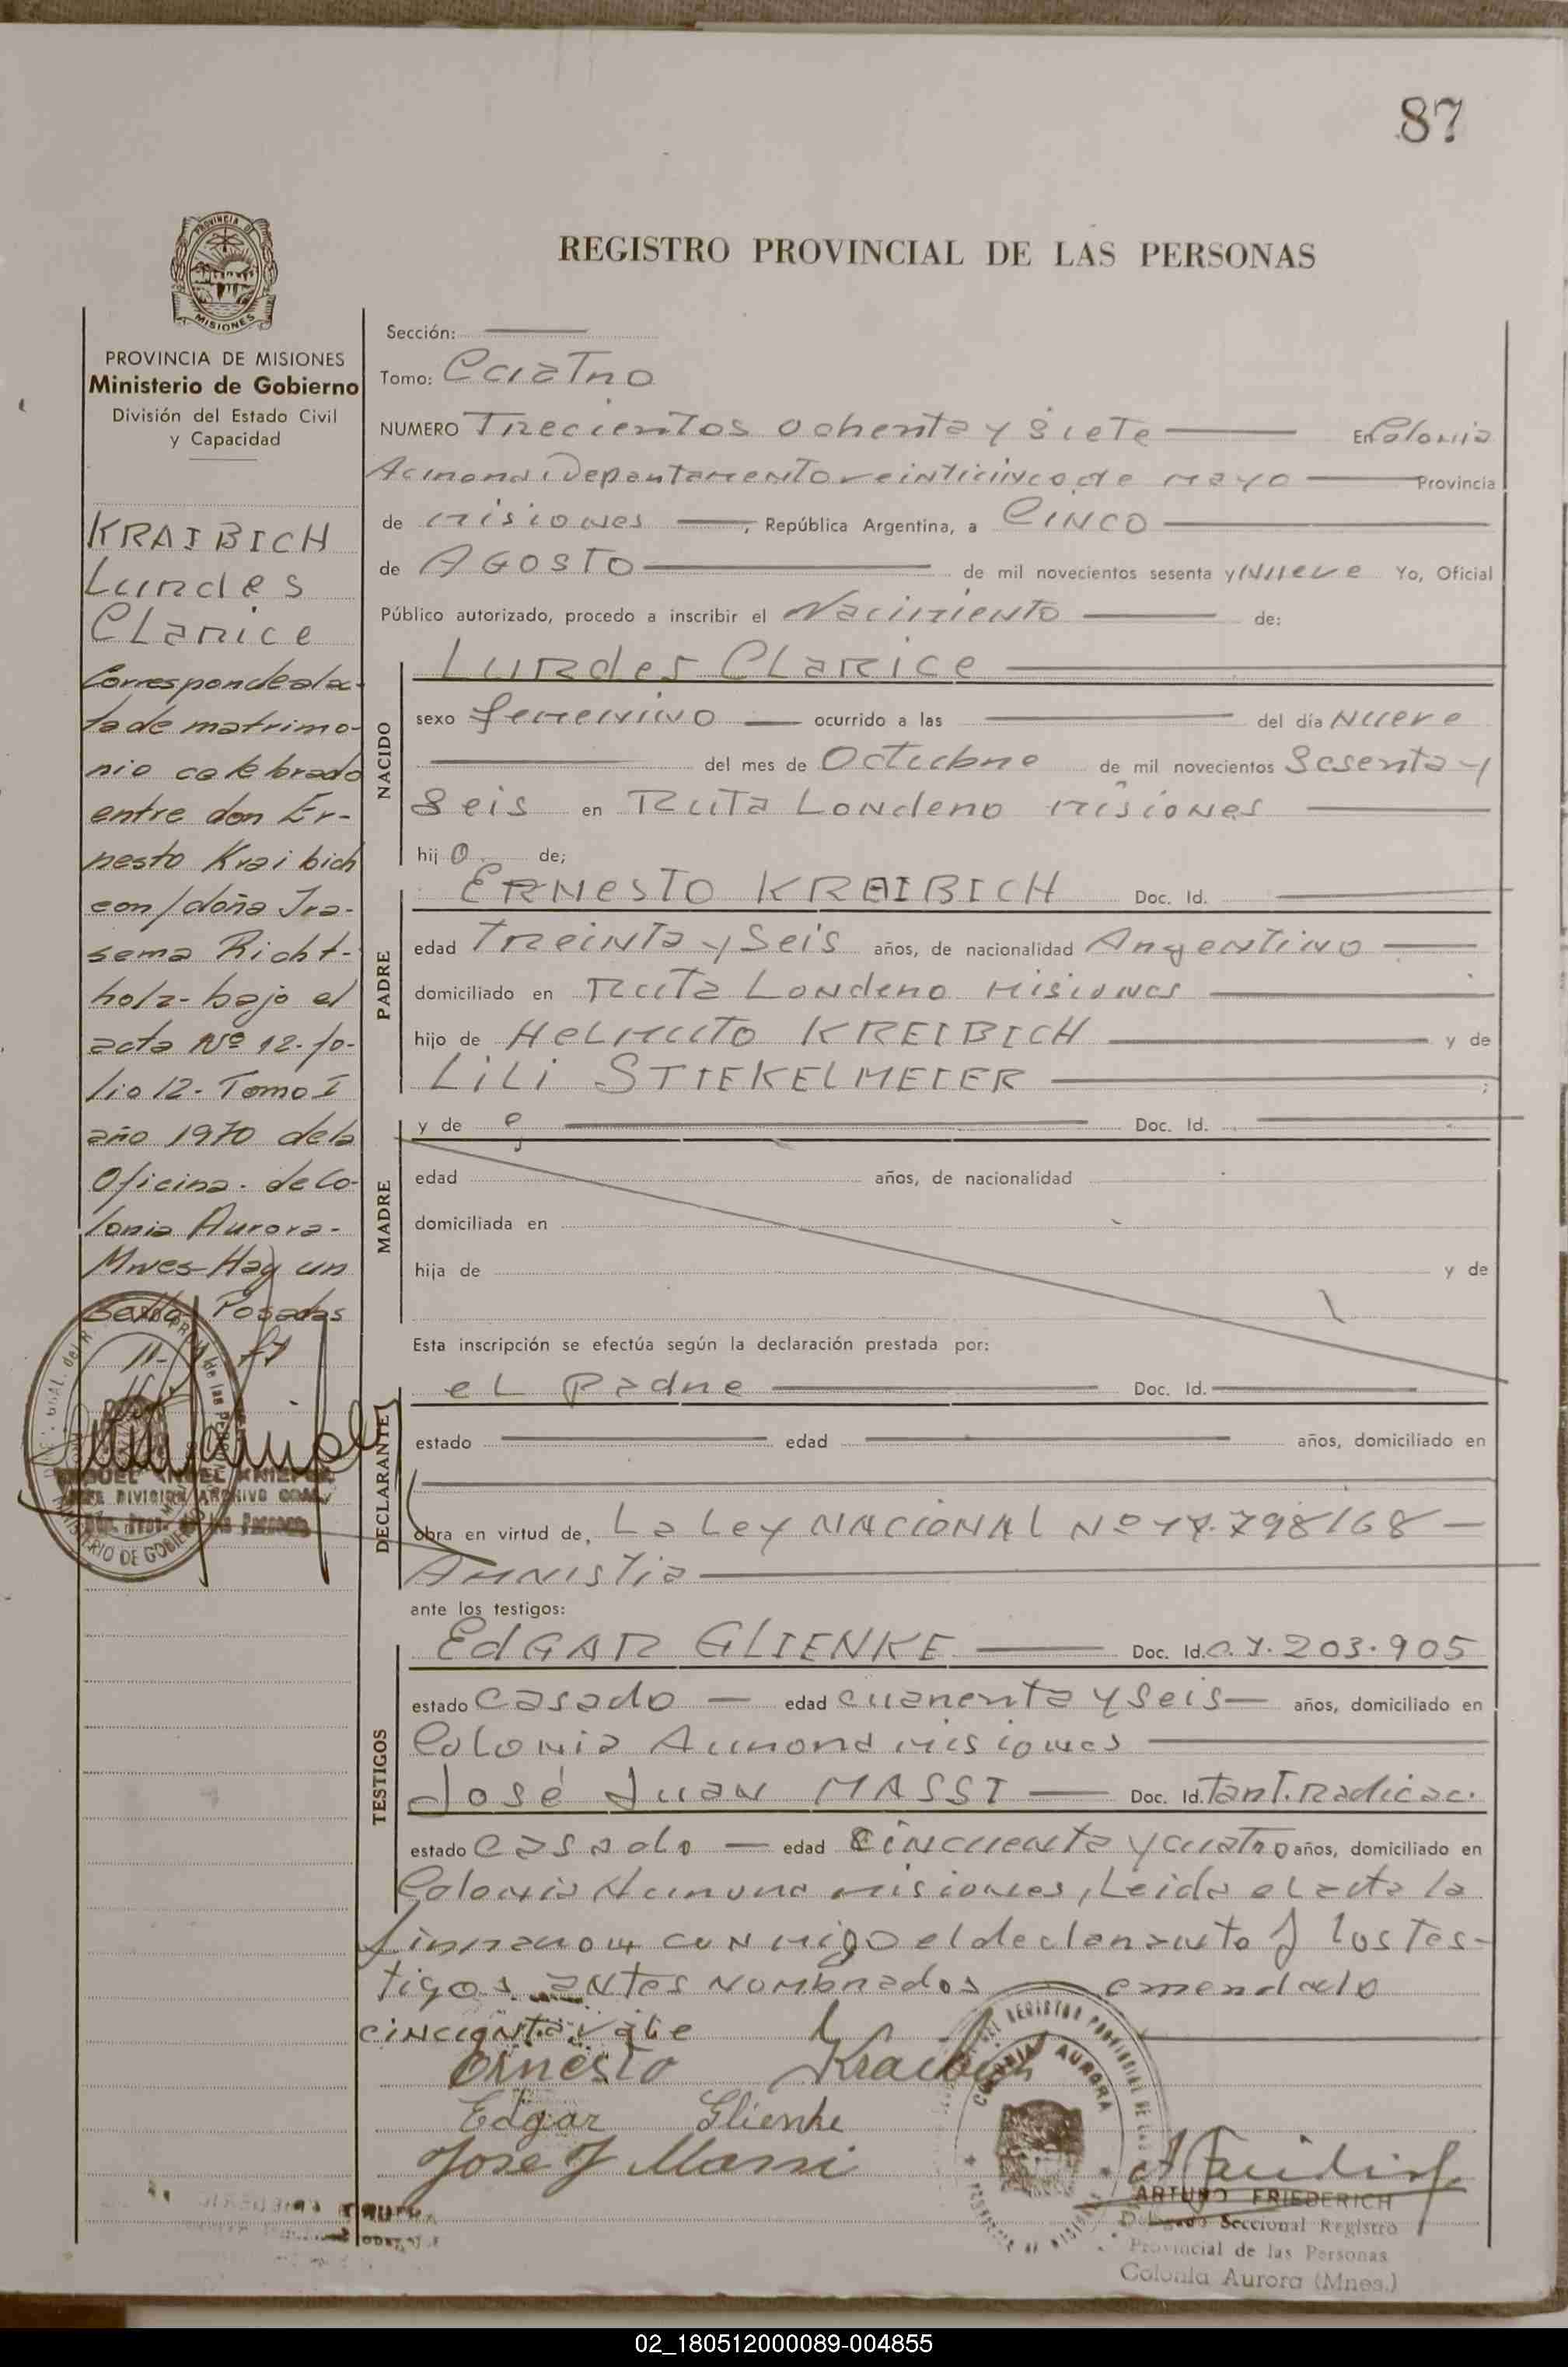 87
PROVINCIA DE
MISIONES
REGISTRO PROVINCIAL DE LAS PERSONAS
PROVINCIA DE MISIONES
Ministerio de Gobierno
División del Estado Civil
y Capacidad
KRAIBICH
Lurdes
Clarice
Corresponde al ac-
ta de matrimo-
nio celebrado
entre don Er-
nesto Kraibich
con/doña Ira-
sema Richt-
holz- bajo el
acta Nº 12- fo-
lio 12- Tomo I
año 1970 de la
Oficina- de Co-
lonia Aurora-
Mnes- Hay un
sello Posadas
MINISTERIO DE GOBIERNO
Sección:
Tomo: Cuatro
NUMERO Trecientos ochenta y siete En Colonia
Aurora Departamento veinticinco de mayo Provincia
de misiones, República Argentina, a CINCO
de AGOSTO de mil novecientos sesenta y Nueve Yo, Oficial
Público autorizado, procedo a inscribir el Nacimiento de:
NACIDO
Lurdes Clarice
sexo femenino ocurrido a las del día Nueve
del mes de Octubre de mil novecientos Sesenta y
Seis en Ruta Londero misiones
hij o de;
PADRE
Ernesto KRAIBICH Doc. Id.
edad Treinta y Seis años, de nacionalidad Argentino
domiciliado en Ruta Londero Misiones
hijo de Helmuto KREIBICH y de
LiLi STIEKELMEIER ;
MADRE
y de Doc. Id.
edad años, de nacionalidad
domiciliada en
hija de y de
Esta inscripción se efectúa según la declaración prestada por:
DECLARANTE
el Padre Doc. Id.
estado edad años, domiciliado en
obra en virtud de, La Ley NACIONAL Nº 17.798/68
Amnistia
ante los testigos:
TESTIGOS
EdGAR GLIENKE Doc. Id. C.I. 203.905
estado casado edad cuarenta y seis años, domiciliado en
Colonia Aurora misiones
José Juan MASSI Doc. Id. Tarj. Radicac.
estado casado edad Cincuenta y cuatro años, domiciliado en
Colonia Aurora misiones, Leida el acta la
firmaron conmigo el declarante y los tes-
tigos antes nombrados emendado
cincuenta vale
Ernesto Kraibich
Edgar Glienke
Jose J Massi
COLONIA AURORA
ARTURO FRIEDERICH
Delegado Seccional Registro
Provincial de las Personas
Colonia Aurora (Mnes.)
02_180512000089-004855